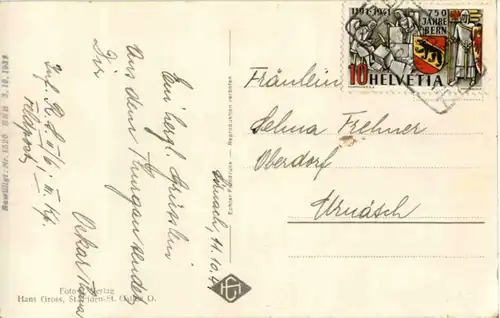 1191-1941
750
JAHRE
BERN
10 HELVETIA
Fräulein
Selma Frehner
Oberdorf
Urnäsch
Ein herzl. Grüsslein
Aus dem Thurgau sendet
Dir
Oskar
Inf. R. S.
III. Kp.
Feldpost
11.10.41
Bewilligt: Nr. 1520 BRB 3.10.1939
Echte Photographie — Reproduktion verboten
Foto-Verlag
Hans Gross, St. Fiden-St. Gallen O.